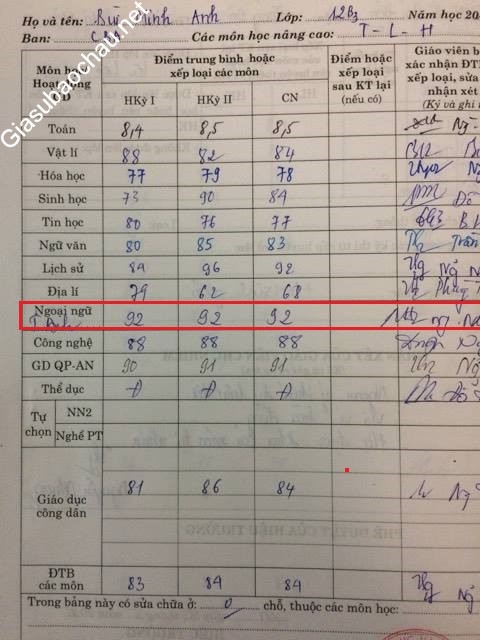 Họ và tên: Bùi Minh Anh Lớp: 12B3 Năm học 20
Ban: CBA Các môn học nâng cao: T - L - H
Môn học Hoạt động GD
Điểm trung bình hoặc xếp loại các môn
Điểm hoặc xếp loại sau KT lại (nếu có)
Giáo viên b
xác nhận ĐT
xếp loại, sửa
nhận xét
(Ký và ghi
HKỳ I HKỳ II CN
Toán 8,4 8,5 8,5
Vật lí 88 82 84
Hóa học 77 79 78
Sinh học 73 90 84
Tin học 80 76 77
Ngữ văn 80 85 83
Lịch sử 84 96 92
Địa lí 79 62 68
Ngoại ngữ 92 92 92
Công nghệ 88 88 88
GD QP-AN 90 91 91
Thể dục Đ Đ Đ
Tự chọn
NN2
Nghề PT
Giáo dục công dân 81 86 84
ĐTB các môn 83 84 84
Trong bảng này có sửa chữa ở: 0 chỗ, thuộc các môn học:
Giasubaochau.net